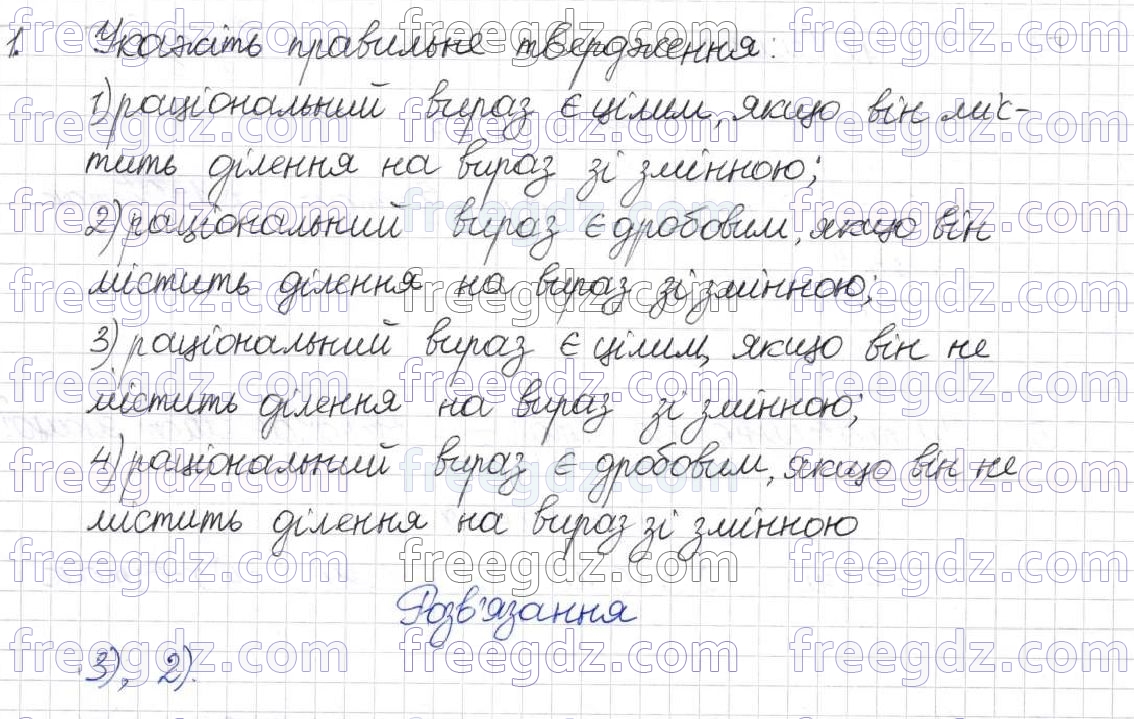 1. Укажіть правильне твердження:
1) раціональний вираз є цілим, якщо він міс-
тить ділення на вираз зі змінною;
2) раціональний вираз є дробовим, якщо він
містить ділення на вираз зі змінною;
3) раціональний вираз є цілим, якщо він не
містить ділення на вираз зі змінною;
4) раціональний вираз є дробовим, якщо він не
містить ділення на вираз зі змінною
Розв'язання
3), 2).
freegdz.com